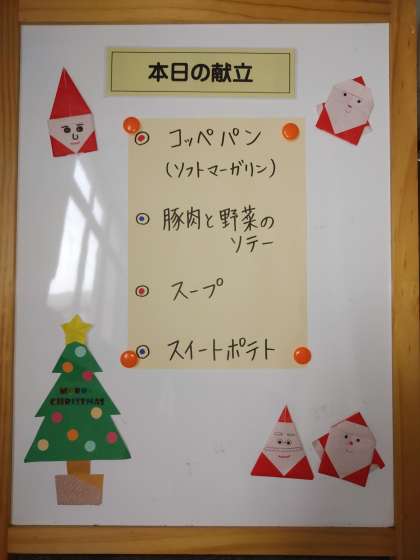 本日の献立
コッペパン
(ソフトマーガリン)
豚肉と野菜の
ソテー
スープ
スイートポテト
MERRY
CHRISTMAS